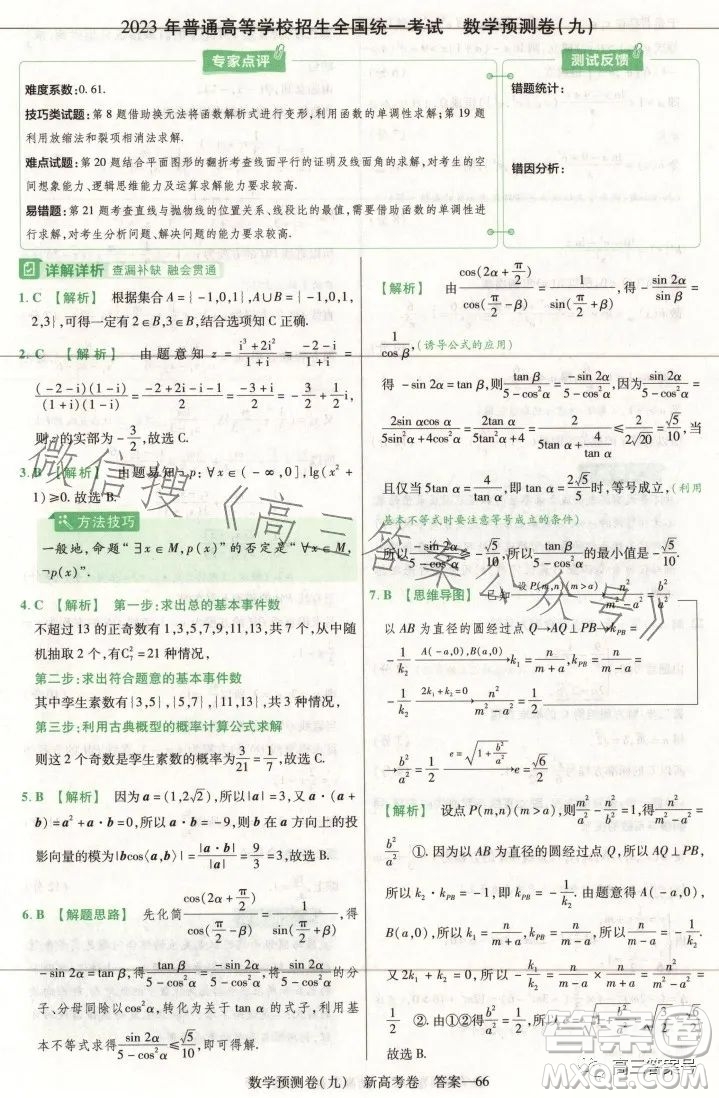 2023 年普通高等学校招生全国统一考试 数学预测卷(九)
专家点评
难度系数:0.61.
技巧类试题:第 8 题借助换元法将函数解析式进行变形,利用函数的单调性求解;第 19 题
利用放缩法和裂项相消法求解.
难点试题:第 20 题结合平面图形的翻折考查线面平行的证明及线面角的求解,对考生的空
间想象能力、逻辑思维能力及运算求解能力要求较高.
易错题:第 21 题考查直线与抛物线的位置关系、线段比的最值,需要借助函数的单调性进
行求解,对考生分析问题、解决问题的能力要求较高.
测试反馈
错题统计:
错因分析:
详解详析 查漏补缺 融会贯通
1. C 【解析】 根据集合 A={-1,0,1},A∪B={-1,0,1,
2,3},可得一定有 2∈B,3∈B,结合选项知 C 正确.
2. C 【解析】 由题意知 z=(i³+2i²)/(1+i)=(-2-i)/(1+i)=
(-2-i)(1-i)/((1+i)(1-i))=(-2+2i-i-1)/2=(-3+i)/2=-3/2+1/2 i,
则 z 的实部为 -3/2,故选 C.
3. B 【解析】 由题易知¬p:∀x∈(-∞,0],lg(x²+
1)≥0.故选 B.
方法技巧
一般地,命题“∃x∈M,p(x)”的否定是“∀x∈M,
¬p(x)”.
4. C 【解析】 第一步:求出总的基本事件数
不超过 13 的正奇数有 1,3,5,7,9,11,13,共 7 个,从中随
机抽取 2 个,有C₇²=21 种情况,
第二步:求出符合题意的基本事件数
其中孪生素数有{3,5},{5,7},{11,13},共 3 种情况,
第三步:利用古典概型的概率计算公式求解
则这 2 个奇数是孪生素数的概率为 3/21=1/7,故选 C.
5. B 【解析】 因为 a=(1,2√2),所以|a|=3,由 a·(a+
b)=a²+a·b=0,所以 a·b=-9,则 b 在 a 方向上的投
影向量的模为|b|cos⟨a,b⟩|=|a·b|/|a|=9/3=3,故选 B.
6. B 【解题思路】 先化简 cos(2α+π/2)/cos(π/2-β)=1/sin(π/2-β),得
-sin 2α=tan β,得 tan β/(5-cos²α)=-sin 2α/(5-cos²α),将 sin 2α/(5-cos²α) 的分
子、分母同除以cos²α,转化为关于 tan α 的式子,利用基
本不等式求得 sin 2α/(5-cos²α)≤√5/10,故得解.
【解析】 由 cos(2α+π/2)/cos(π/2-β)=1/sin(π/2+β),得 -sin 2α/sin β=
1/cos β,(诱导公式的应用)
得 -sin 2α=tan β,则 tan β/(5-cos²α)=-sin 2α/(5-cos²α),因为 sin 2α/(5-cos²α)=
2sin αcos α/(5sin²α+4cos²α)=2tan α/(5tan²α+4)=2/(5tan α+4/tan α)≤2/(2√20)=√5/10,当
且仅当 5tan α=4/tan α,即 tan α=2√5/5时,等号成立,(利用
基本不等式时要注意等号成立的条件)
所以 -sin 2α/(5-cos²α)≥-√5/10,所以 tan β/(5-cos²α) 的最小值是 -√5/10.
7. B 【思维导图】 已知 设P(m,n)(m>a)→ n²/(m²-a²)=b²/a²
以 AB 为直径的圆经过点 Q→AQ⊥PB→k_PB=
-1/k₂ A(-a,0),B(a,0)→ k₁=n/(m+a),k_PB=n/(m-a)=
-1/k₂ 2k₁+k₂=0→ n²/(m²-a²)=1/2
→b²/a²=1/2 e=√(1+b²/a²)→ e=√6/2
【解析】 设点 P(m,n)(m>a),则m²/a²-n²/b²=1,得n²/(m²-a²)=
b²/a² ①.因为以 AB 为直径的圆经过点 Q,所以 AQ⊥PB,
所以 k₂·k_PB=-1,即 k_PB=-1/k₂.由题意可得 A(-a,0),
B(a,0),所以 k₁=n/(m+a),k_PB=n/(m-a),所以 n/(m-a)=-1/k₂.
又 2k₁+k₂=0,所以 -k₁/k₂=n/(m-a)×n/(m+a)=n²/(m²-a²)=
1/2 ②.由①②得b²/a²=1/2,所以
数学预测卷(九) 新高考卷 答案—66
微信搜《高三答案公众号》
答案圈
高三答案号